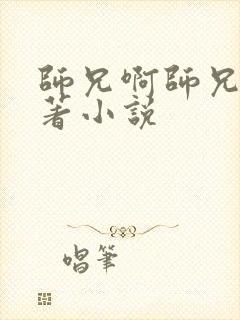 師兄啊師兄
著小說
唱筆